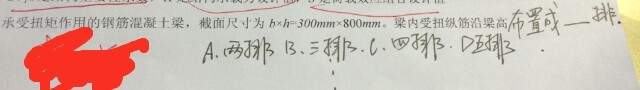 承受扭矩作用的钢筋混凝土梁，截面尺寸为 b×h=300mm×800mm。梁内受扭纵筋沿梁高布置成__排.
A.两排 B.三排 C.四排. D五排